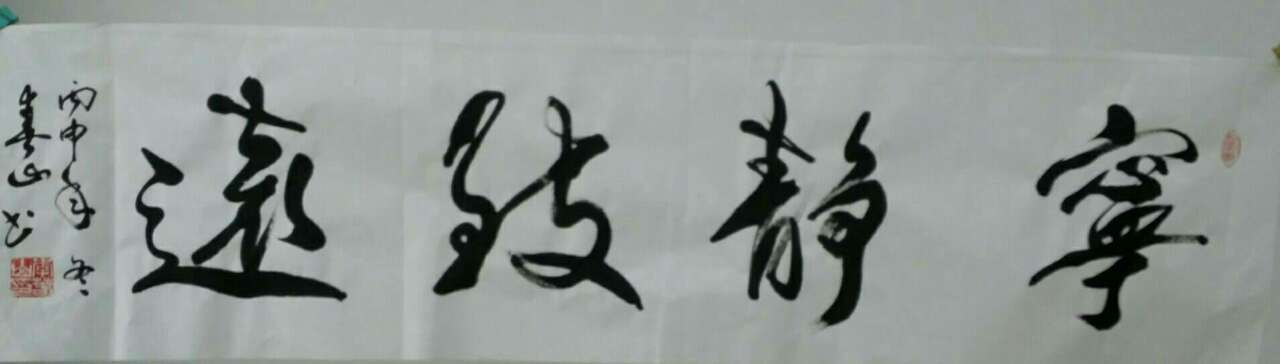 寧靜致遠
丙申年冬
春山书